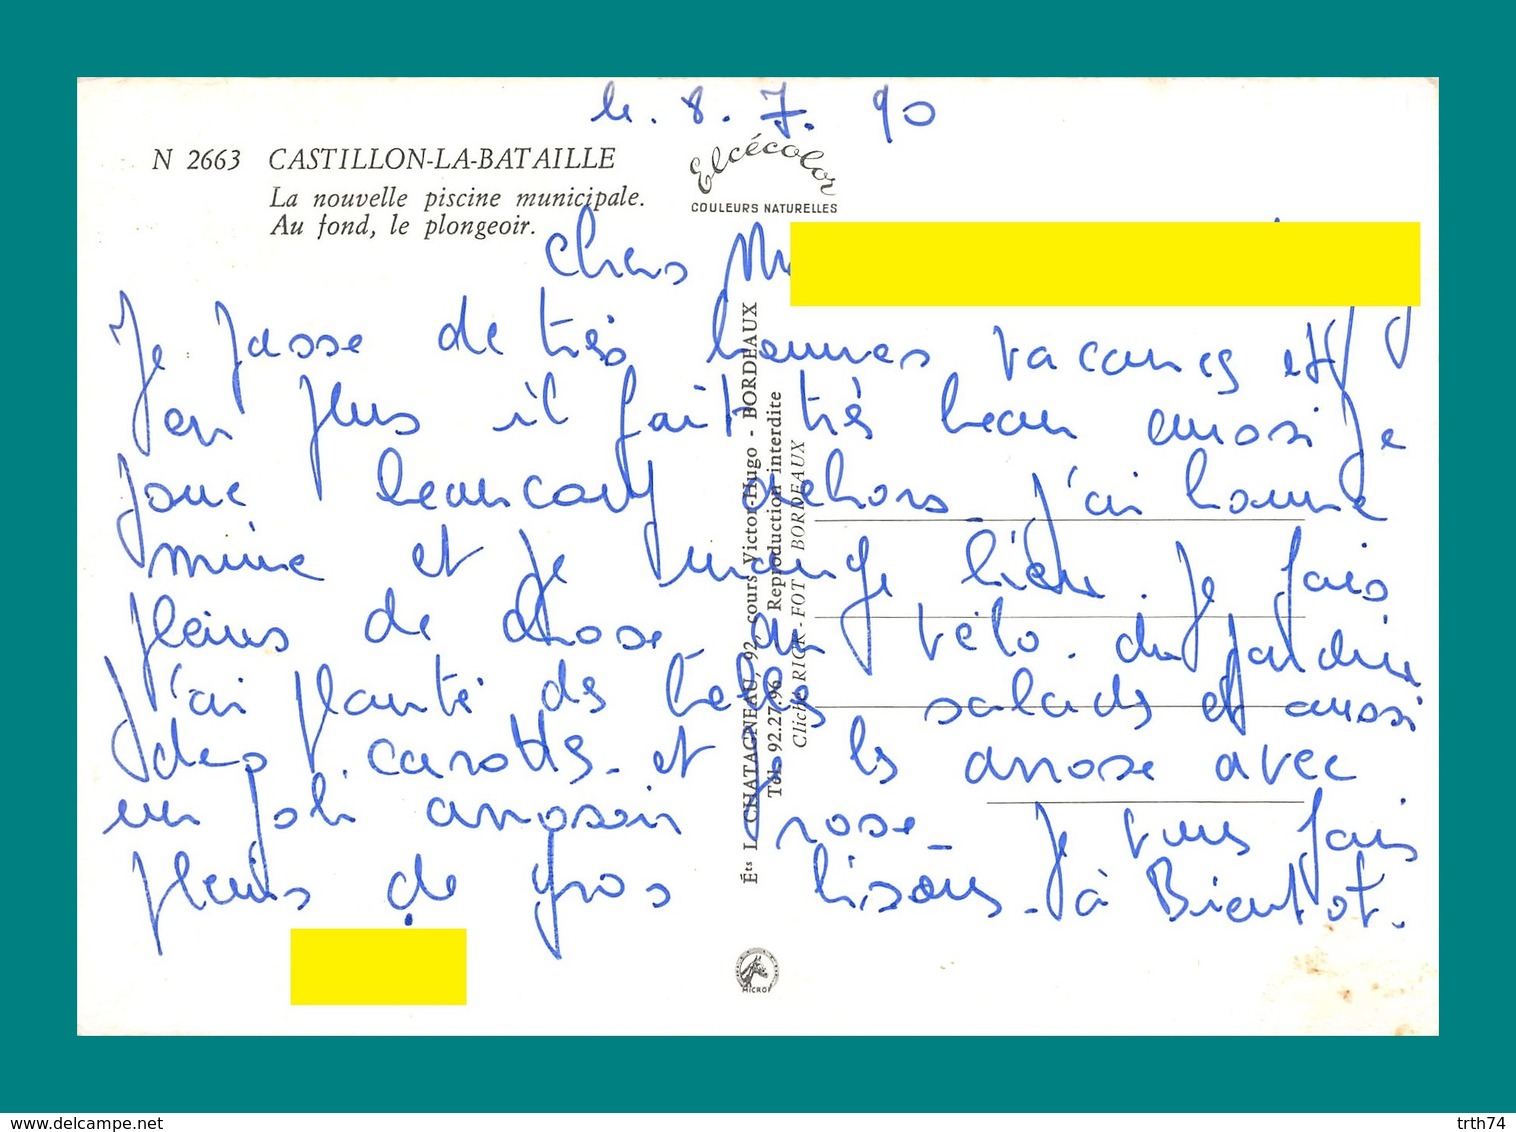 le. 8. 7. 90
N 2663 CASTILLON-LA-BATAILLE
La nouvelle piscine municipale.
Au fond, le plongeoir.
Elcécolor
COULEURS NATURELLES
Chers
Je passe de très bonnes vacances et
en plus il fait très beau aussi je
joue beaucoup dehors_ j'ai bonne
mine et je mange bien. Je fais
pleins de chose du vélo. du jardin
j'ai planté des belles salades et aussi
des carottes_ et je les arrose avec
un joli arrosoir rose_ Je vous fais
pleins de gros bisous_ à Bientôt.
Éts L. CHATAGNEAU, 92, cours Victor-Hugo - BORDEAUX
Tél. 92.27.96 - Reproduction interdite
Cliché RICK-FOT BORDEAUX
trth74